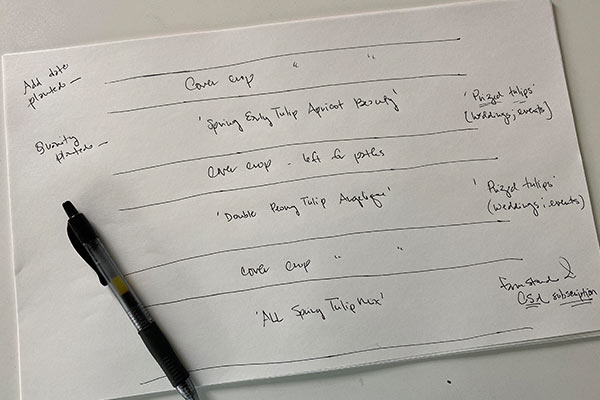 Add date
planted —
Cover crop " "
'Spring Early Tulip Apricot Beauty'
'Prized tulips'
(weddings; events)
Quantity
planted —
Cover crop - left for paths
'Double Peony Tulip Angelique'
'Prized tulips'
(weddings; events)
cover crop " "
'All Spring Tulip Mix'
farmstand &
CSA subscription